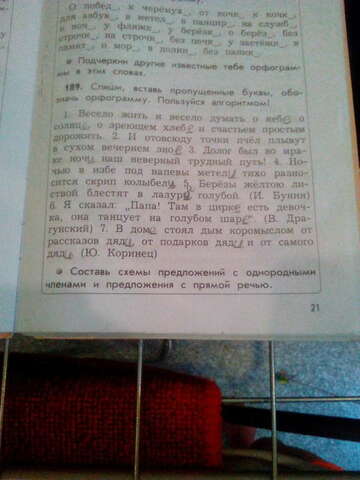 О побед_, к черёмух_, от кочк_ к кочк_,
для азбук_, в метел_, в панцир_, на служб_,
в ноч_, у фляжк_, у берёзк_, о берёз_, без
строчк_, на строчк_, без печк_, у застёжк_, в
памят_, и мор_, в долин_, без палик_.
● Подчеркни другие известные тебе орфограм-
мы в этих словах.
189. Спиши, вставь пропущенные буквы, обо-
значь орфограмму. Пользуйся алгоритмом!
1. Весело жить и весело думать о небе о
солнце, о зреющем хлебе и счастьем простым
дорожить. 2. И отовсюду точки пчёл плывут
в сухом вечернем зное 3. Долог был во мра-
ке ночи наш неверный трудный путь! 4. Но-
чью в избе под напевы метели тихо разно-
сится скрип колыбели. 5. Берёзы жёлтою ли-
ствой блестят в лазури голубой. (И. Бунин)
6. Я сказал: „Папа! Там в цирке есть девоч-
ка, она танцует на голубом шаре". (В. Дра-
гунский) 7. В доме стоял дым коромыслом от
рассказов дяди, от подарков дяди и от самого
дяди (Ю. Коринец)
● Составь схемы предложений с однородными
членами и предложения с прямой речью.
21